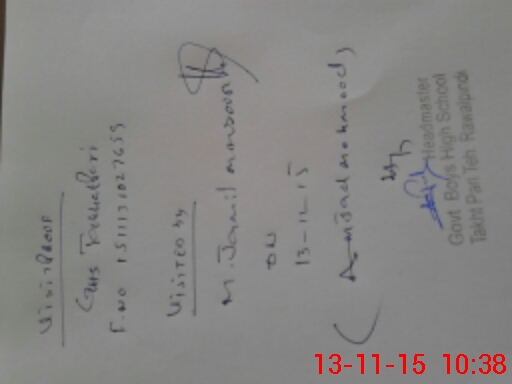 Visit Proof
GHS
F.NO 151113102
VISITED BY
M. Jamil mansoor
ON
13-11-15
(Amjad mahmood)
Headmaster
Govt Boys High School
Takht Pari Teh Rawalpindi
13-11-15 10:38